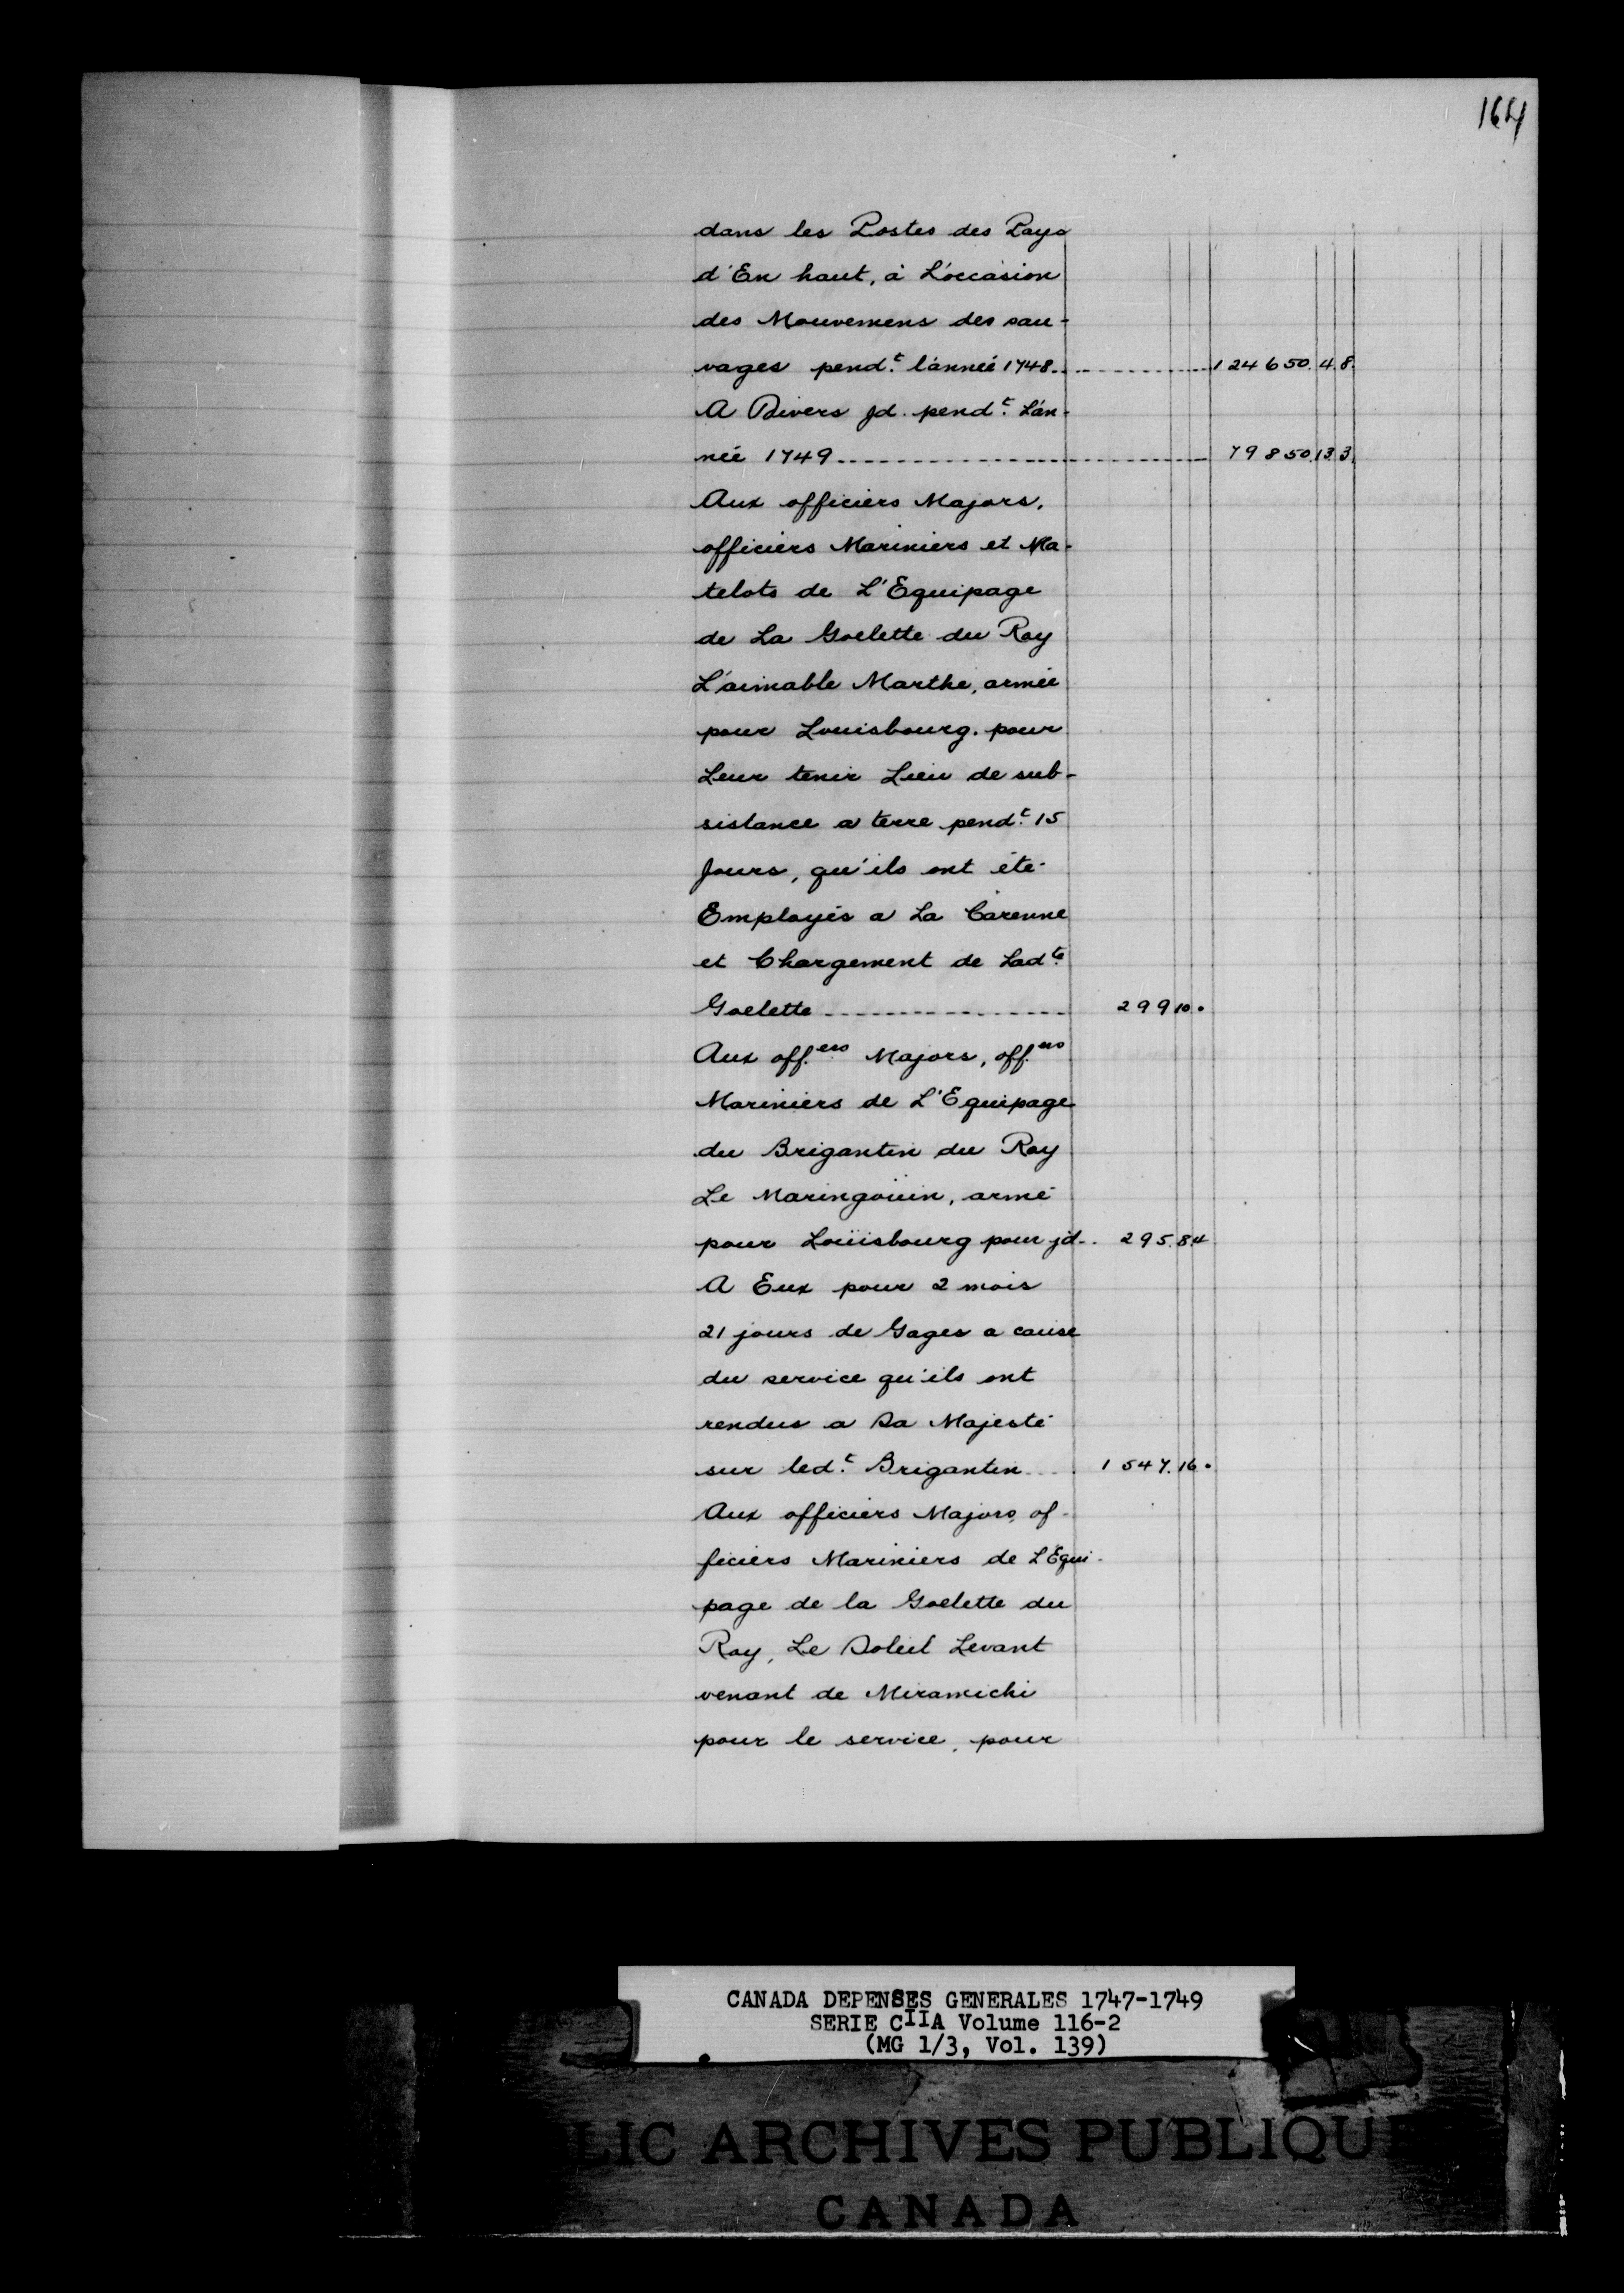 164
dans les Postes des Pays
d'En haut, à L'occasion
des Mouvemens des sau-
vages pend.t l'année 1748 124650. 4. 8.
A Divers Jd. pend.t L'an-
née 1749 79850. 13. 3.
Aux officiers Majors,
officiers Mariniers et Ma-
telots de L'Equipage
de La Goelette du Roy
L'aimable Marthe, armée
pour Louisbourg. pour
Leur tenir Lieu de sub-
sistance a terre pend.t 15
Jours, qu'ils ont été
Employés a La Carenne
et Chargement de Lad.te
Goelette 299 10.
Aux off.ers Majors, off.ers
Mariniers de L'Equipage
du Brigantin du Roy
Le Maringouin, armé
pour Louïsbourg pour jd. 295. 8. 4
A Eux pour 2 mois
21 jours de Gages a cause
du service qu'ils ont
rendus a Sa Majesté
sur led.t Brigantin 1547. 16.
Aux officiers Majors, of-
ficiers Mariniers de L'Equi-
page de la Goelette du
Roy, Le Soleil Levant
venant de Miramichi
pour le service, pour
CANADA DEPENSES GENERALES 1747-1749
SERIE CIIA Volume 116-2
(MG 1/3, Vol. 139)
LIC ARCHIVES PUBLIQU
CANADA